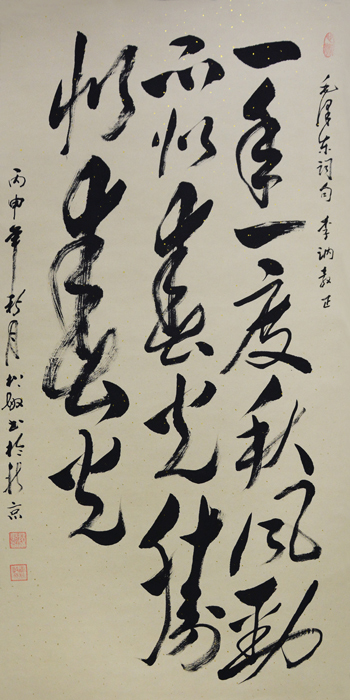 毛泽东词句 李讷教正
一年一度秋风劲
不似春光胜
似春光
丙申年 月 敏书於 京